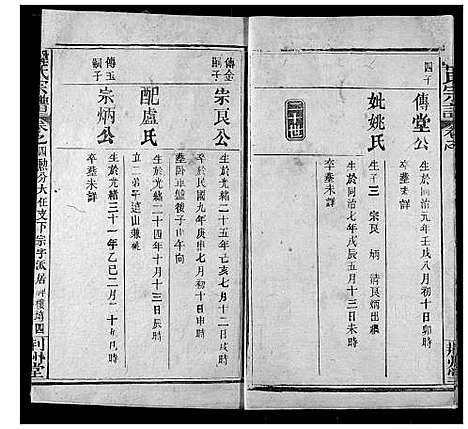 四子
傳堂公
生於同治元年壬戌八月初十日卯時
卒葬未詳
妣姚氏
生於同治七年戊辰五月十三日未時
卒葬未詳
生子三 宗良 炳 清 良炳出繼
二十四世
傳金嗣子
崇良公
生於光緒二十五年己亥七月十二日戌時
歿於民國九年庚申七月初十日申時
葬卧車盤後子山午向
配盧氏
生於光緒二十四年十月十三日辰時
立二弟子道山兼祧
傳玉嗣子
宗炳公
生於光緒三十一年乙巳二月二十未時
卒葬未詳
氏宗譜
四勳分大在支下宗字派居
四